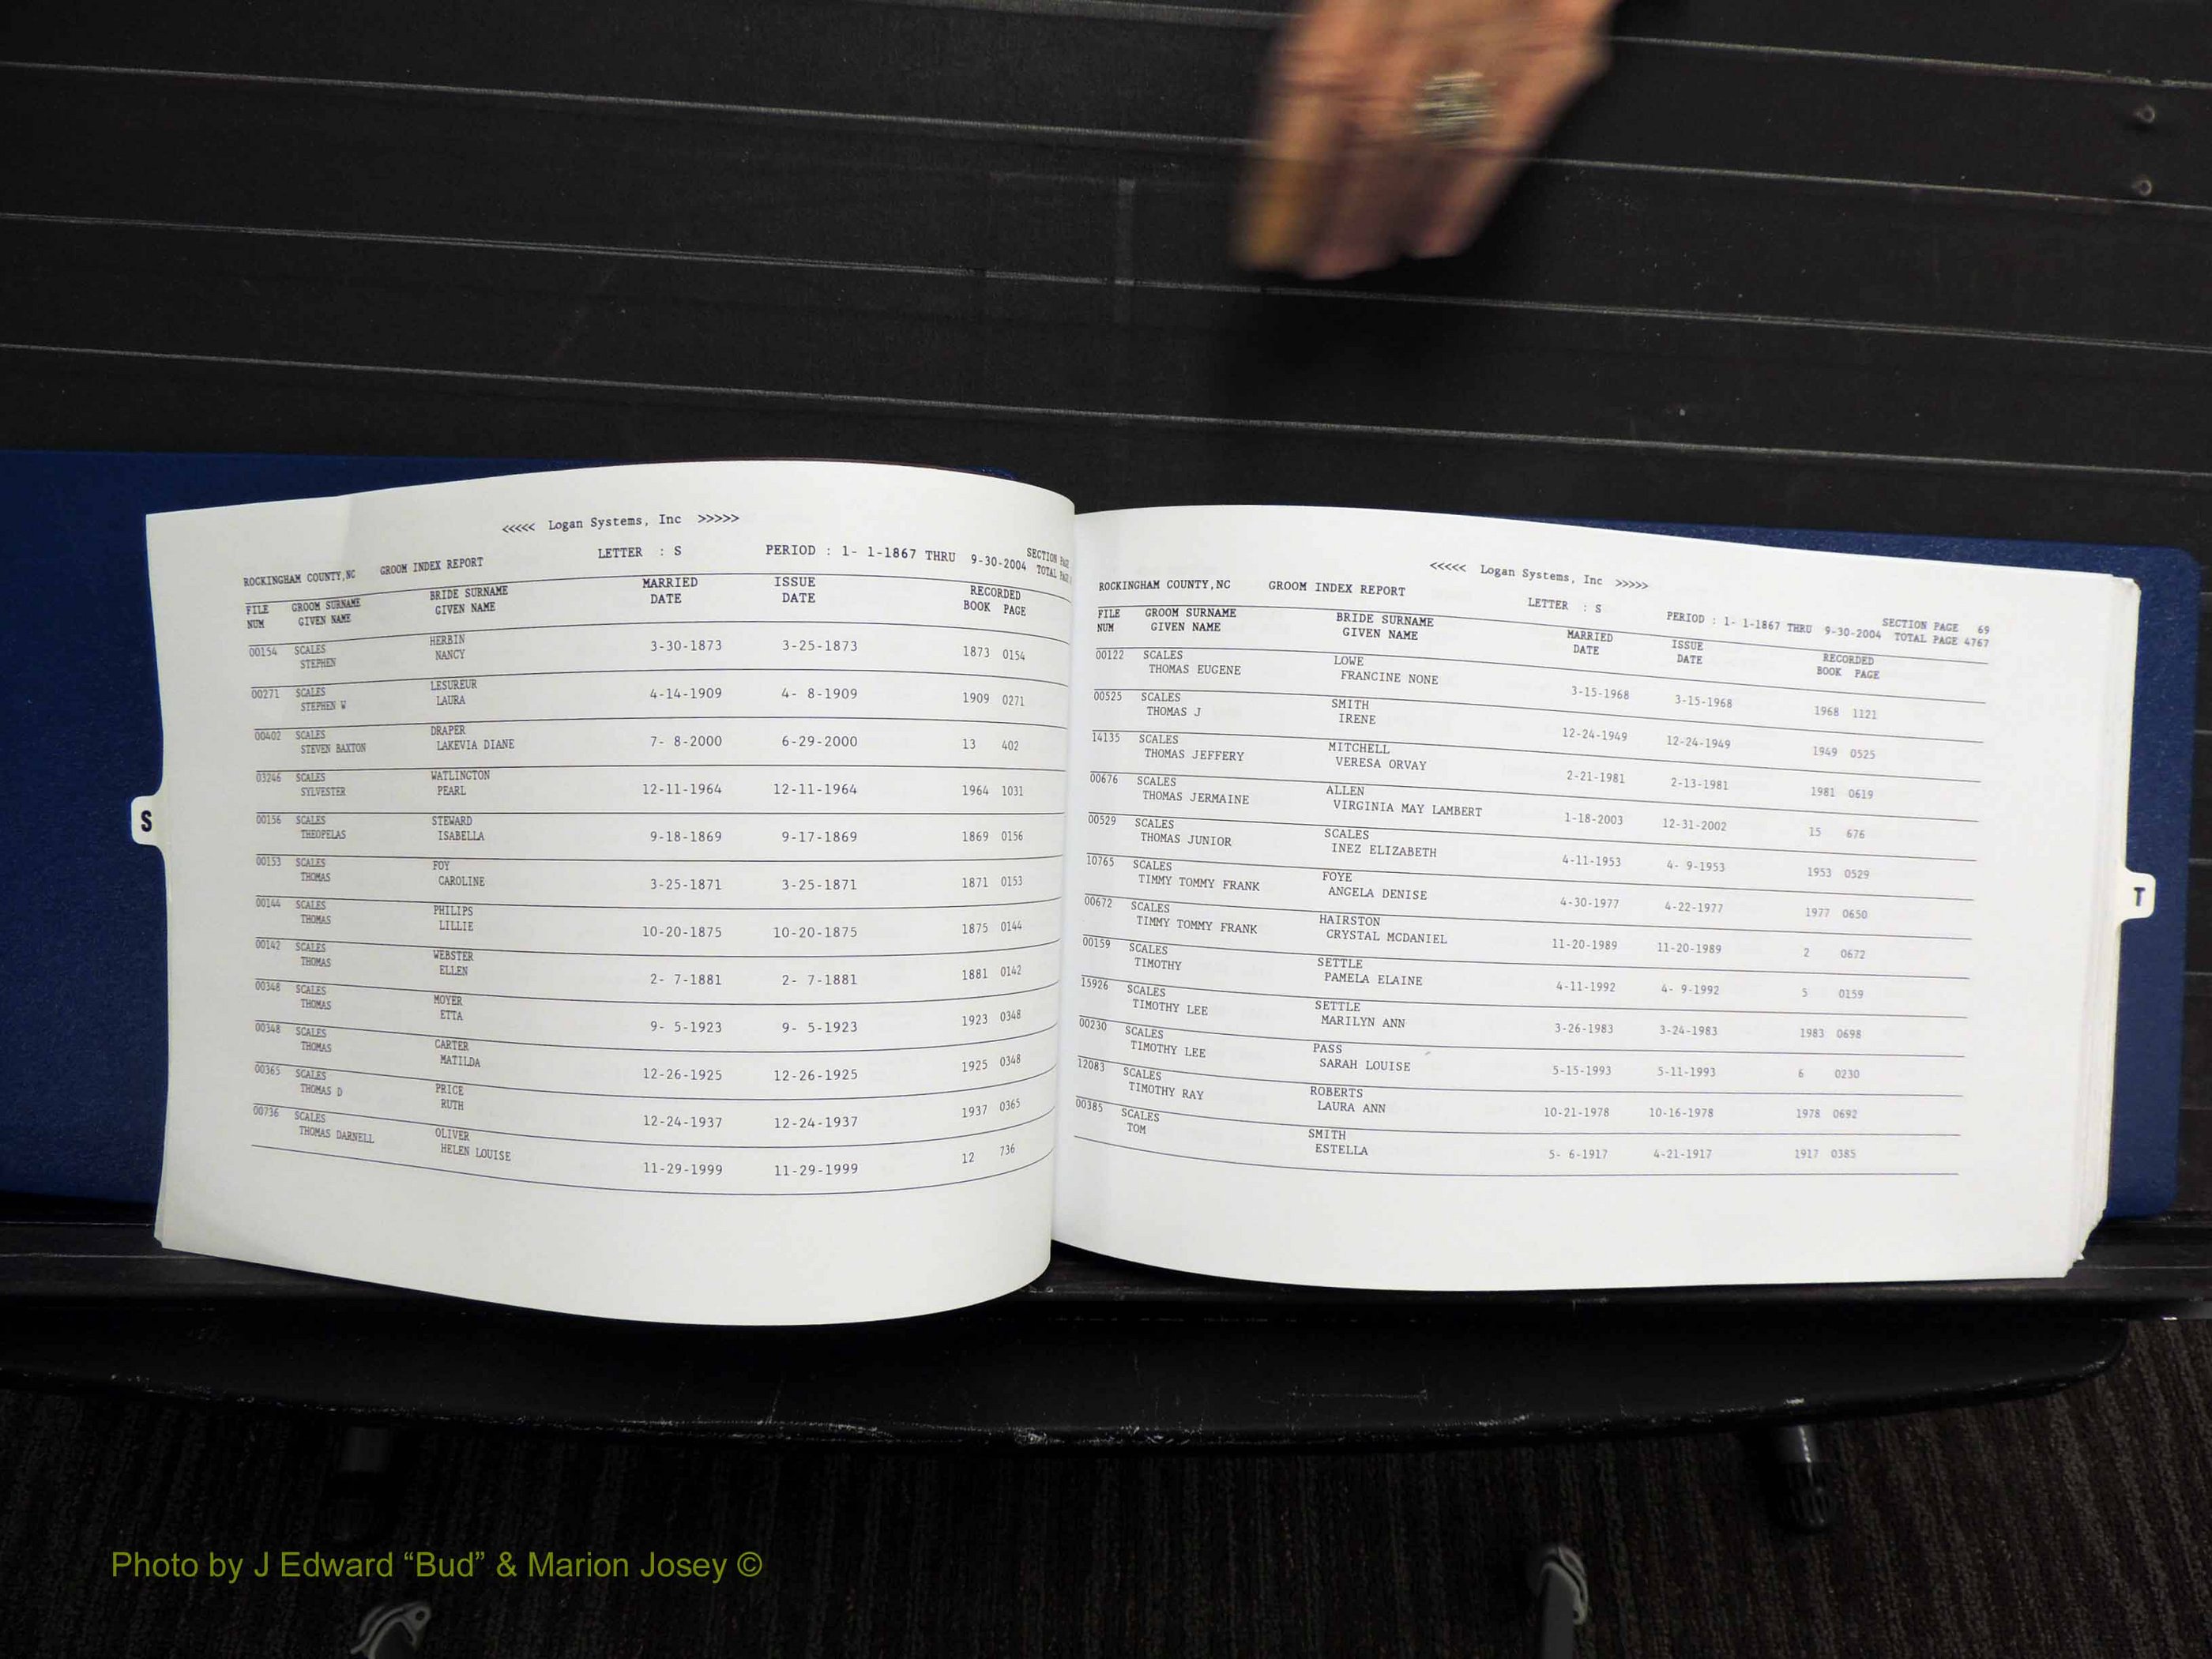 <<<<< Logan Systems, Inc >>>>>
ROCKINGHAM COUNTY,NC GROOM INDEX REPORT LETTER : S PERIOD : 1- 1-1867 THRU 9-30-2004 SECTION PAGE
TOTAL PAGE
FILE GROOM SURNAME BRIDE SURNAME MARRIED ISSUE RECORDED
NUM GIVEN NAME GIVEN NAME DATE DATE BOOK PAGE
00154 SCALES HERBIN 3-30-1873 3-25-1873 1873 0154
STEPHEN NANCY
00271 SCALES LESUREUR 4-14-1909 4- 8-1909 1909 0271
STEPHEN W LAURA
00402 SCALES DRAPER 7- 8-2000 6-29-2000 13 402
STEVEN BAXTON LAKEVIA DIANE
03246 SCALES WATLINGTON 12-11-1964 12-11-1964 1964 1031
SYLVESTER PEARL
00156 SCALES STEWARD 9-18-1869 9-17-1869 1869 0156
THEOPELAS ISABELLA
00153 SCALES FOY 3-25-1871 3-25-1871 1871 0153
THOMAS CAROLINE
00144 SCALES PHILIPS 10-20-1875 10-20-1875 1875 0144
THOMAS LILLIE
00142 SCALES WEBSTER 2- 7-1881 2- 7-1881 1881 0142
THOMAS ELLEN
00348 SCALES MOYER 9- 5-1923 9- 5-1923 1923 0348
THOMAS ETTA
00348 SCALES CARTER 12-26-1925 12-26-1925 1925 0348
THOMAS MATILDA
00365 SCALES PRICE 12-24-1937 12-24-1937 1937 0365
THOMAS D RUTH
00736 SCALES OLIVER 11-29-1999 11-29-1999 12 736
THOMAS DARNELL HELEN LOUISE
S
<<<<< Logan Systems, Inc >>>>>
ROCKINGHAM COUNTY,NC GROOM INDEX REPORT LETTER : S PERIOD : 1- 1-1867 THRU 9-30-2004 SECTION PAGE 69
TOTAL PAGE 4767
FILE GROOM SURNAME BRIDE SURNAME MARRIED ISSUE RECORDED
NUM GIVEN NAME GIVEN NAME DATE DATE BOOK PAGE
00122 SCALES LOWE 3-15-1968 3-15-1968 1968 1121
THOMAS EUGENE FRANCINE NONE
00525 SCALES SMITH 12-24-1949 12-24-1949 1949 0525
THOMAS J IRENE
14135 SCALES MITCHELL 2-21-1981 2-13-1981 1981 0619
THOMAS JEFFERY VERESA ORVAY
00676 SCALES ALLEN 1-18-2003 12-31-2002 15 676
THOMAS JERMAINE VIRGINIA MAY LAMBERT
00529 SCALES SCALES 4-11-1953 4- 9-1953 1953 0529
THOMAS JUNIOR INEZ ELIZABETH
10765 SCALES FOYE 4-30-1977 4-22-1977 1977 0650
TIMMY TOMMY FRANK ANGELA DENISE
00672 SCALES HAIRSTON 11-20-1989 11-20-1989 2 0672
TIMMY TOMMY FRANK CRYSTAL MCDANIEL
00159 SCALES SETTLE 4-11-1992 4- 9-1992 5 0159
TIMOTHY PAMELA ELAINE
15926 SCALES SETTLE 3-26-1983 3-24-1983 1983 0698
TIMOTHY LEE MARILYN ANN
00230 SCALES PASS 5-15-1993 5-11-1993 6 0230
TIMOTHY LEE SARAH LOUISE
12083 SCALES ROBERTS 10-21-1978 10-16-1978 1978 0692
TIMOTHY RAY LAURA ANN
00385 SCALES SMITH 5- 6-1917 4-21-1917 1917 0385
TOM ESTELLA
T
Photo by J Edward “Bud” & Marion Josey ©